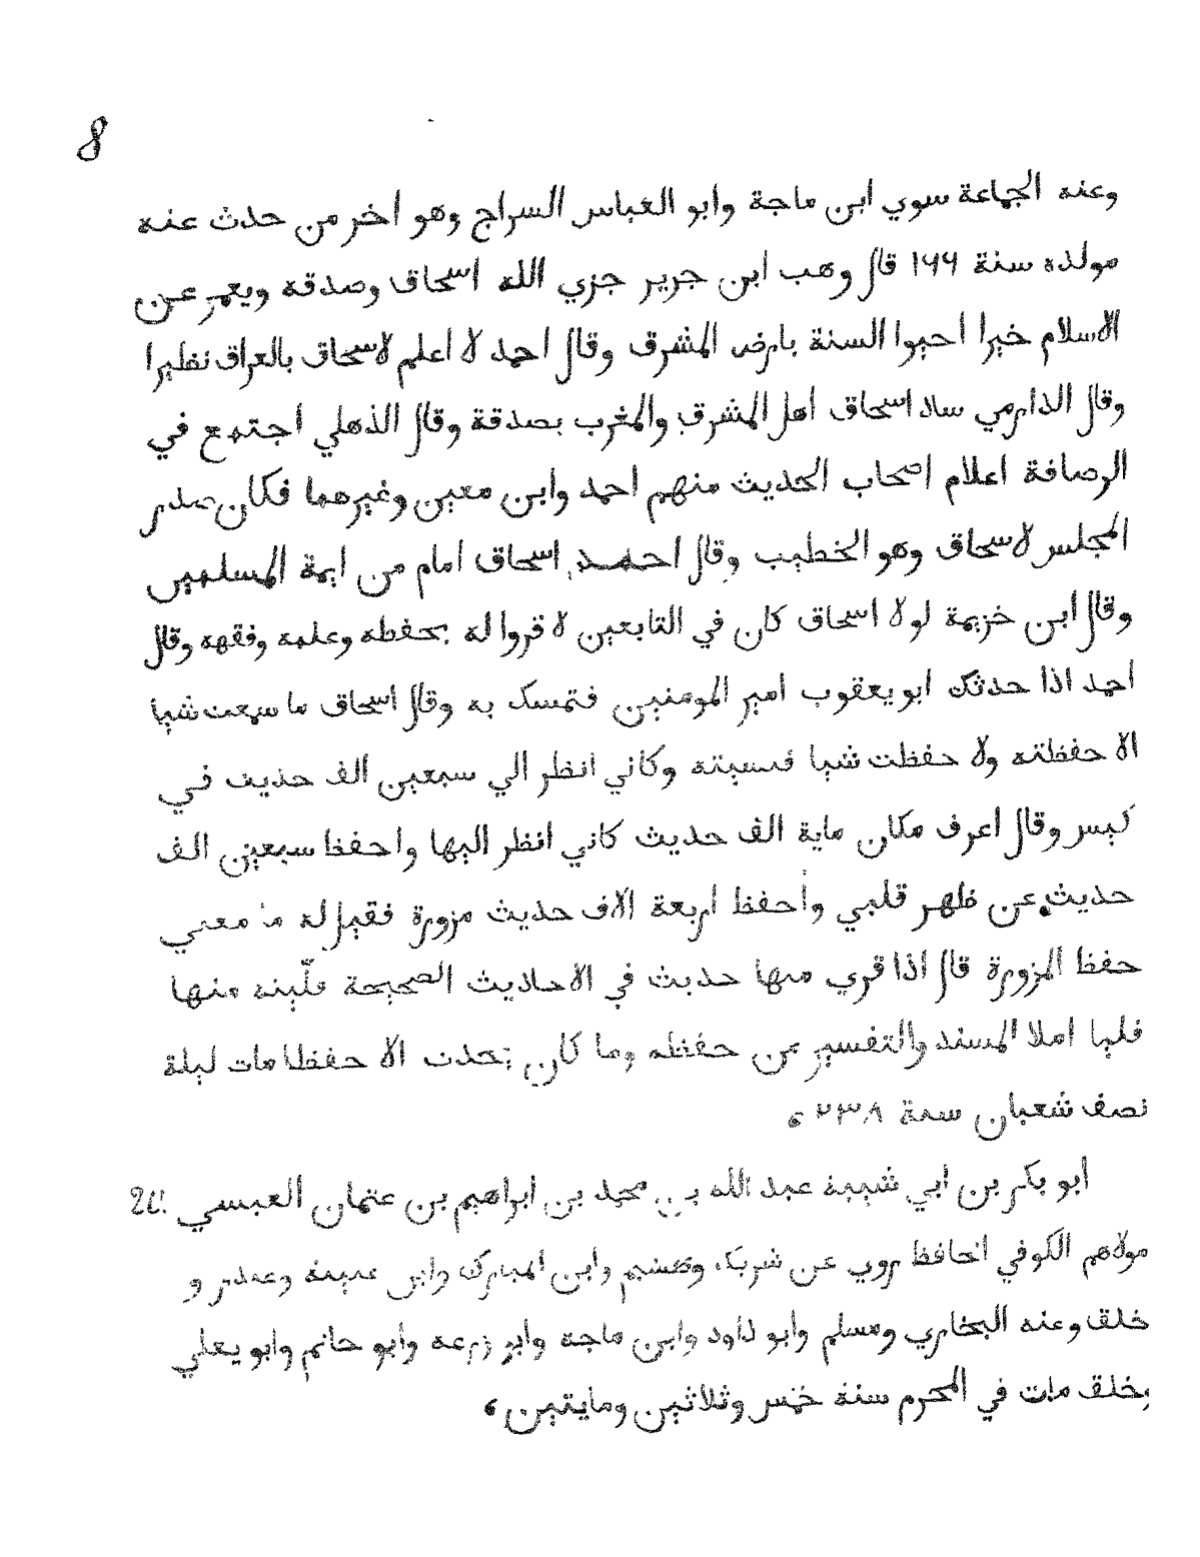 8
وعنه الجماعة سوي ابن ماجة وابو العباس السراج وهو اخر من حدث عنه
مولده سنة ١٩٩ قال وهب ابن جرير جزي الله اسحاق وصدقه ويعمر عن
الاسلام خيرا احيوا السنة بارض المشرق وقال احمد لا اعلم لاسحاق بالعراق نظيرا
وقال الدارمي ساد اسحاق اهل المشرق والمغرب بصدقة وقال الذهلي اجتمع في
الرصافة اعلام اصحاب الحديث منهم احمد وابن معين وغيرهما فكان صدر
المجلس لاسحاق وهو الخطيب وقال احمد اسحاق امام من ايمة المسلمين
وقال ابن خزيمة لولا اسحاق كان في التابعين لاقروا له بحفظه وعلمه وفقهه وقال
احمد اذا حدثك ابو يعقوب امير المومنين فتمسك به وقال اسحاق ما سمعت شيا
الا حفظته ولا حفظت شيا فنسيته وكاني انظر الي سبعين الف حديث في
كيس وقال اعرف مكان ماية الف حديث كاني انظر اليها واحفظ سبعين الف
حديث عن ظهر قلبي وأحفظ اربعة الاف حديث مزورة فقيل له ما معني
حفظ المزورة قال اذا قري منها حديث في الاحاديث الصحيحة فلّينه منها
فليا املا المسند والتفسير من حفظه وما كان يحدث الا حفظا مات ليلة
نصف شعبان سنة ٢٣٨ ،
ابو بكر بن ابي شيبة عبد الله بن محمد بن ابراهيم بن عثمان العبسي
مولاهم الكوفي الحافظ روي عن شريك وهشيم وابن المبارك وابن عيينة وغندر و
خلق وعنه البخاري ومسلم وابو داود وابن ماجه وابو زرعه وابو حاتم وابو يعلي
وخلق مات في المحرم سنة خمس وثلاثين ومايتين ،